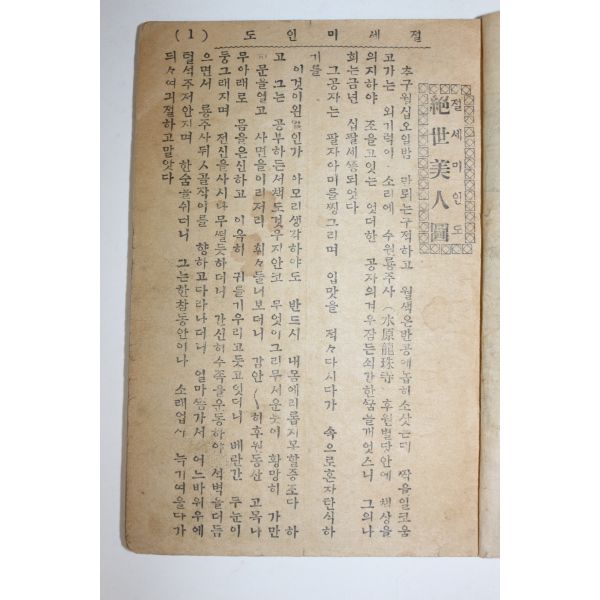 절세미인도 (1)
절세미인도
絕世美人圖
추구월십오일밤 만뢰는구적하고 월색은반공에놉히소삿는데 짝을일코움
고가는 외기럭이 소리에 수원룡주사(水原龍珠寺) 후원별당안에 책상을
의지하야 조을고잇는 엇더한 공자의겨우잠든쇠잔한꿈을깨엿스니 그의나
희는금년 십팔세쯤되엿다
그공자는 팔자아미를찡그리며 입맛을 적々다시다가 속으로혼자탄식하
기를
이것이웬일인가 아모리생각하야도 반드시 내몸에리롭지못할증조다 하
고 그는 공부하든서책도거두지안코 무엇이그리무서운듯이 황망히 가만
히문을열고 사면을이리저리 휘々둘너보더니 감안〱히후원동산 고목나
무아래로 몸을은신하고 이윽히 귀를기우리고듯고잇더니 베란간 두눈이
둥그래지며 전신을사시나무떨듯하더니 간신히수족을운동하야 석벽을더듬
으면서 룡주사뒤ㅅ골작이를 향하고다라나더니 얼마쯤가서 어느바위우에
털석주저안지며 한숨을쉬더니 그는한참동안이나 소래업시 늑기여울다가
듸々여긔절하고말앗다